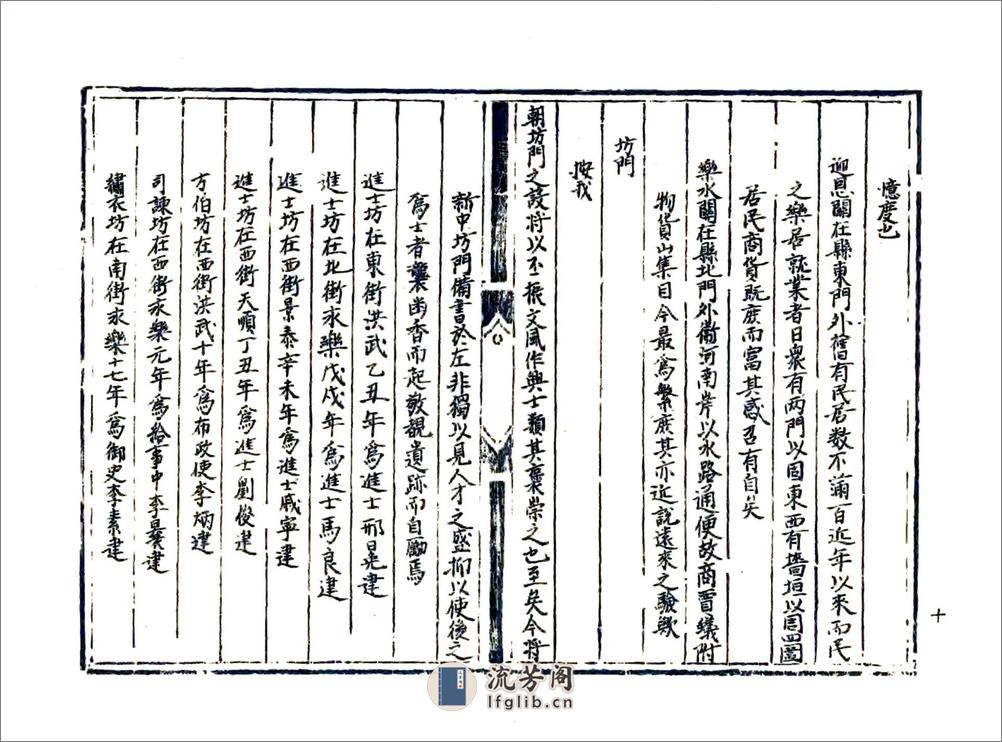 憶度也
迎恩關在縣東門外舊有民居数不滿百近年以來而民
之樂居就業者日衆有两門以固東西有墻垣以周四圍
居民商貨既庶而富其感召有自矣
樂水關在縣北門外衛河南岸以水路通便故商賈蟻附
物貨山集目今最為繁庶其亦近說遠來之驗歟
坊門
按我
朝坊門之設将以丕振文風作興士類其褒崇之也至矣今将
新中坊門備書於左非獨以見人才之盛抑以使後之
為士者囊出香而起敬覩遺跡而自勵焉
進士坊在東街洪武乙丑年為進士邢晃建
進士坊在北街永樂戊戌年為進士馬良建
進士坊在西街景泰辛未年為進士戚寧建
進士坊在西街天順丁丑年為進士劉俊建
方伯坊在西街洪武十年為布政使李炳建
司諫坊在西街永樂元年為給事中李㬎建
繡衣坊在南街永樂十七年為御史李素建
流芳阁
lfglib.cn